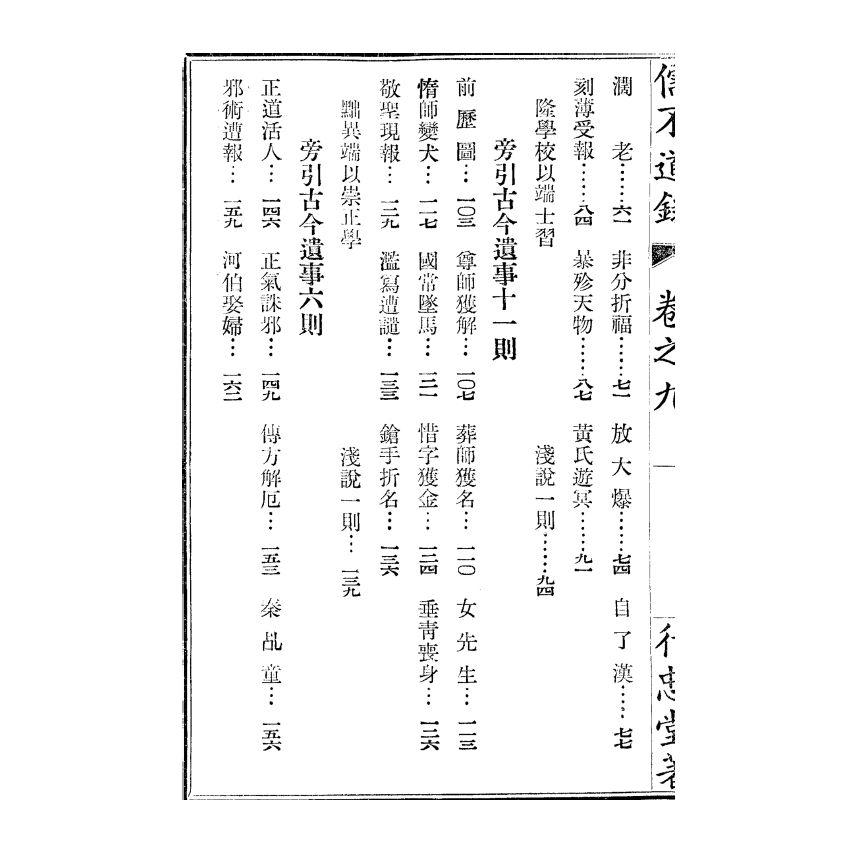 道錄 卷之九 行忠堂著
潤老……六一 非分折福……七一 放大爆……七四 自了漢……七七
刻薄受報……八四 暴殄天物……八七 黃氏遊冥……九一
隆學校以端士習 淺說一則……九四
旁引古今遺事十一則
前歷圖…一〇三 尊師獲解…一〇七 葬師獲名…一一〇 女先生…一一三
惰師變犬…一一七 國常墜馬…一二一 惜字獲金…一二四 垂青喪身…一二六
敬聖現報…一二九 濫寫遭譴…一三三 鎗手折名…一三六
黜異端以崇正學 淺說一則…一三九
旁引古今遺事六則
正道活人…一四六 正氣誅邪…一四九 傳方解厄…一五三 秦乩童…一五六
邪術遭報…一五九 河伯娶婦…一六二